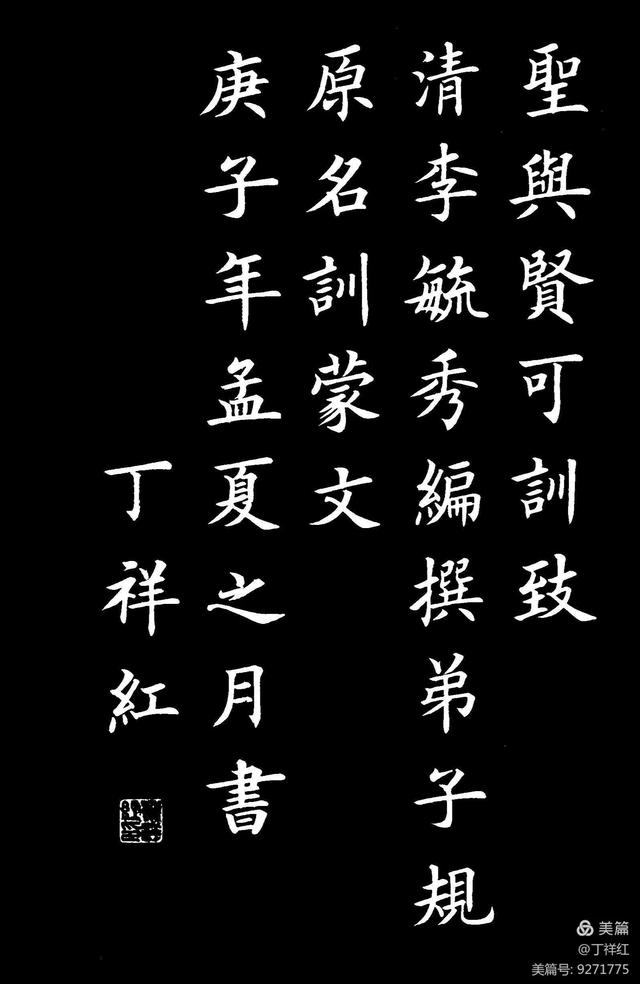 聖與賢可訓致
清李毓秀編撰弟子規
原名訓蒙文
庚子年孟夏之月書
丁祥紅
美篇
@丁祥红
美篇号: 9271775